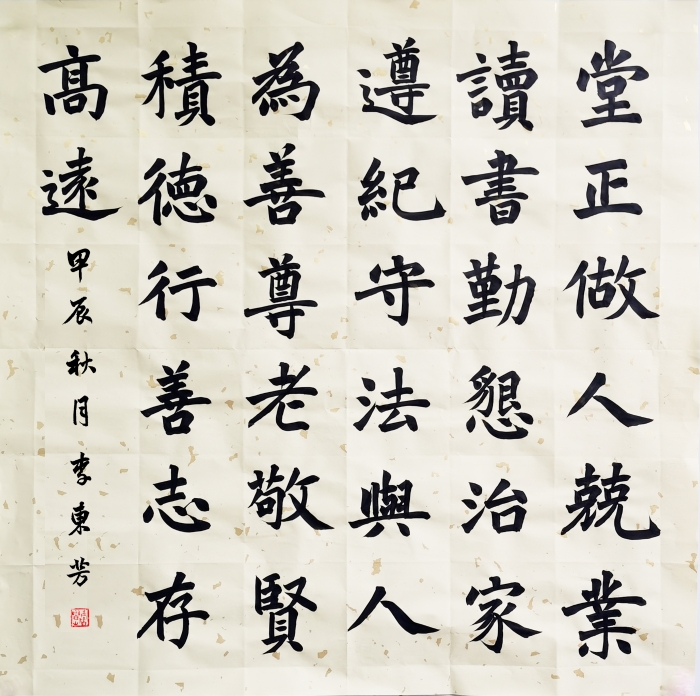 堂正做人兢業
讀書勤懇治家
遵紀守法與人
為善尊老敬賢
積德行善志存
高遠
甲辰秋月李東芳